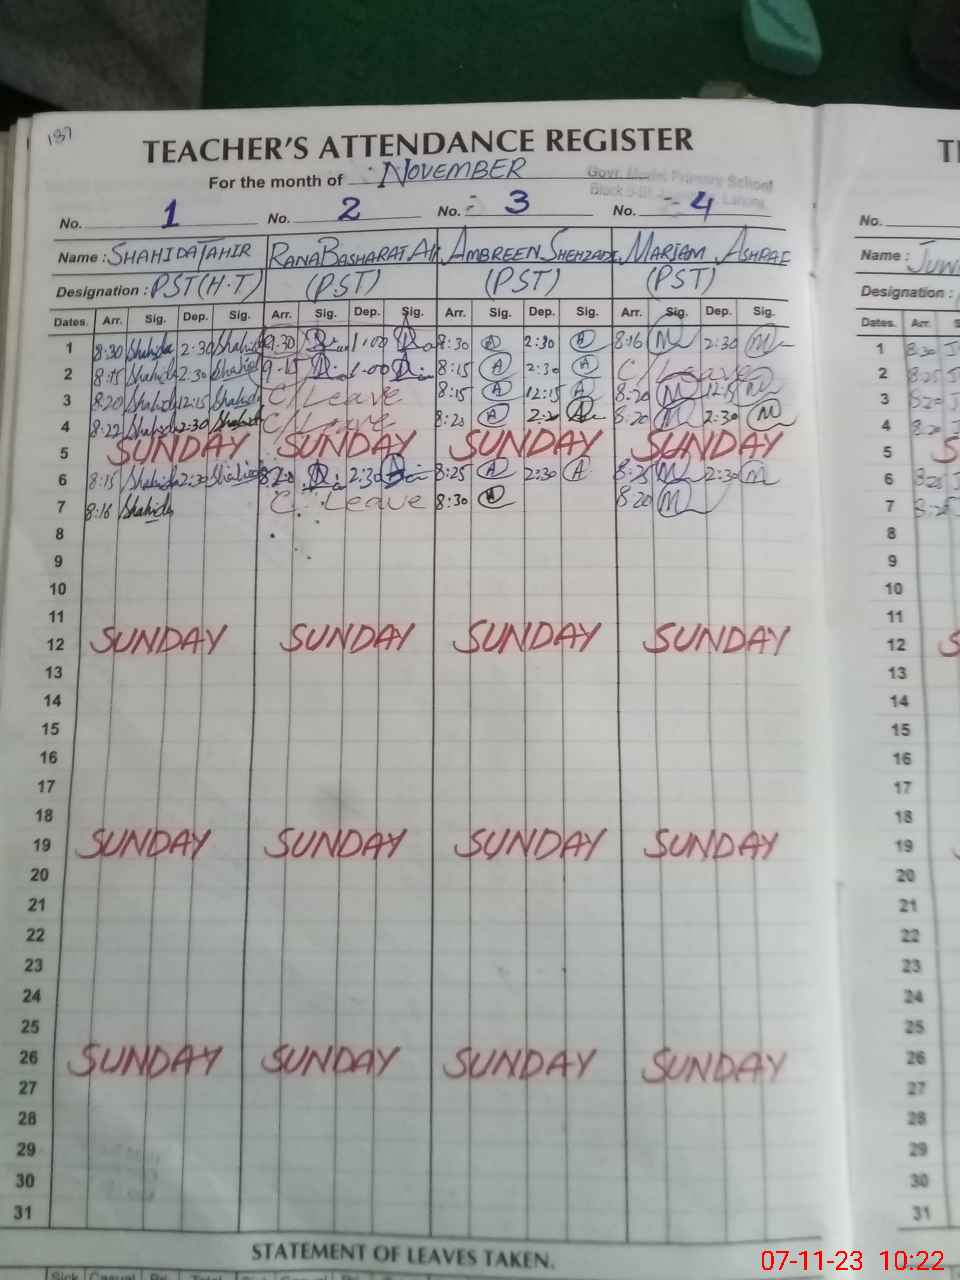 137
TEACHER'S ATTENDANCE REGISTER
For the month of NOVEMBER
Govt. Model Primary School
No. 1 No. 2 No. 3 No. 4 No.
Name : SHAHIDA TAHIR RANA BASHARAT ALI AMBREEN SHEHZADI MARIAM ASHRAF Name :
Designation : PST(H.T) (PST) (PST) (PST) Designation :
Dates. Arr. Sig. Dep. Sig. Arr. Sig. Dep. Sig. Arr. Sig. Dep. Sig. Arr. Sig. Dep. Sig. Dates. Arr. Sig.
1 8:30 Shahida 2:30 Shahida 9:30 1:00 8:30 A 2:30 A 8:16 M 2:30 M 1 8:30
2 8:15 Shahida 2:30 Shahida 9:15 1:00 8:15 A 2:30 A C/Leave 2 8:25
3 8:20 Shahida 12:15 Shahida C/Leave 8:15 A 12:15 A 8:20 M 12:15 M 3 8:20
4 8:22 Shahida 2:30 Shahida C/Leave 8:20 A 2:20 A 8:20 M 2:30 M 4 8:20
5 SUNDAY SUNDAY SUNDAY SUNDAY 5 S
6 8:15 Shahida 2:30 Shahida 8:20 2:30 8:25 A 2:30 A 8:25 M 2:30 M 6 8:25
7 8:16 Shahida C. Leave 8:30 A 8:20 M 7 8:25
8 8
9 9
10 10
11 11
12 SUNDAY SUNDAY SUNDAY SUNDAY 12 S
13 13
14 14
15 15
16 16
17 17
18 18
19 SUNDAY SUNDAY SUNDAY SUNDAY 19
20 20
21 21
22 22
23 23
24 24
25 25
26 SUNDAY SUNDAY SUNDAY SUNDAY 26
27 27
28 28
29 29
30 30
31 31
STATEMENT OF LEAVES TAKEN.
Sick Casual Total
07-11-23 10:22